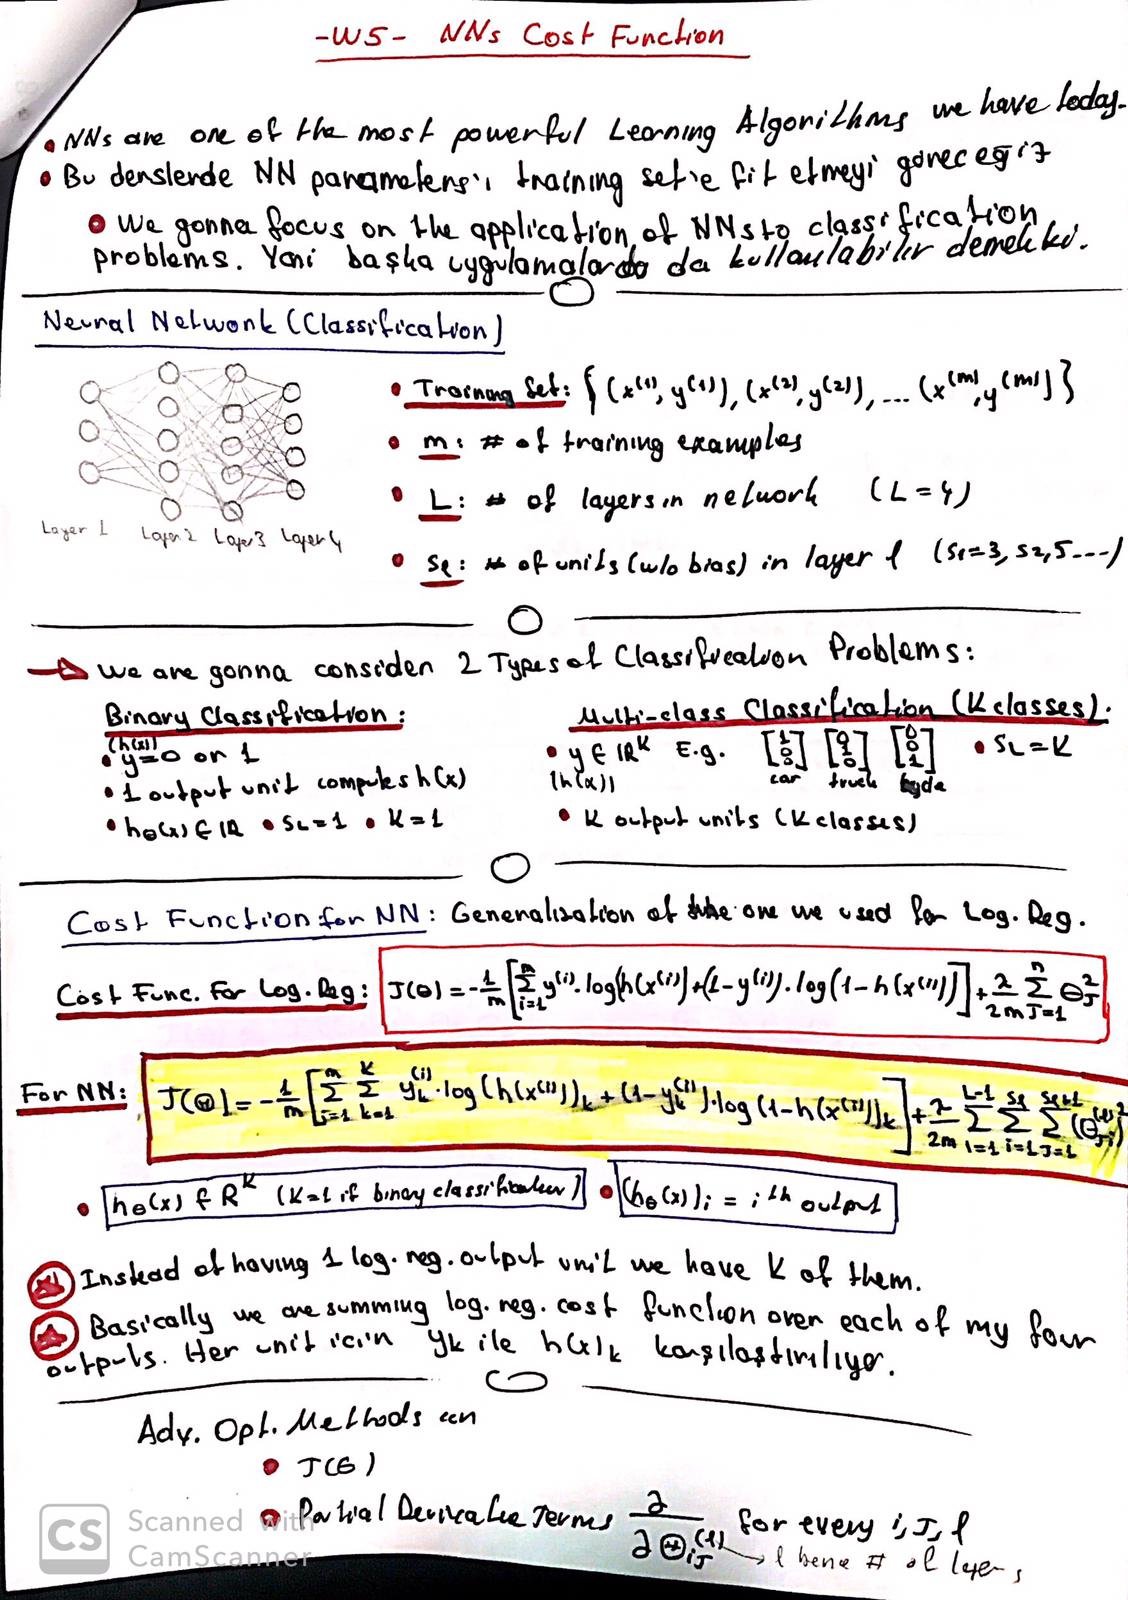 -W5- NNs Cost Function
• NNs are one of the most powerful Learning Algorithms we have today.
• Bu derslerde NN parameters'ı training set'e fit etmeyi göreceğiz
• We gonna focus on the application of NNs to classification
problems. Yani başka uygulamalarda da kullanılabilir demekki.
Neural Network (Classification)
Layer 1 Layer 2 Layer 3 Layer 4
• Training Set: {(x^(1), y^(1)), (x^(2), y^(2)), ... (x^(m), y^(m))}
• m: # of training examples
• L: # of layers in network (L=4)
• Sl: # of units (w/o bias) in layer l (S1=3, S2,5---)
→ we are gonna consider 2 Types of Classification Problems:
Binary Classification:
(h(x))
• y=0 or 1
• 1 output unit computes h(x)
• hθ(x) ∈ IR • SL=1 • K=1
Multi-class Classification (K classes).
• y ∈ IR^K E.g. [1 0 0] [0 1 0] [0 0 1] • SL=K
(h(x)) car truck
• K output units (K classes)
Cost Function for NN: Generalization of the one we used for Log. Reg.
Cost Func. For Log. Reg: J(θ) = -1/m [∑_{i=1}^{m} y^(i).log(h(x^(i)) + (1-y^(i)).log(1-h(x^(i))] + λ/2m ∑_{J=1}^{n} θ_J^2
For NN: J(Θ) = -1/m [∑_{i=1}^{m} ∑_{k=1}^{K} y_k^(i).log(h(x^(i)))_k + (1-y_k^(i)).log(1-h(x^(i)))_k] + λ/2m ∑_{l=1}^{L-1} ∑_{i=1}^{Sl} ∑_{J=1}^{Sl+1} (Θ_Ji^(l))^2
• hθ(x) ∈ R^K (K=1 if binary classification) • (hθ(x))i = i^th output
Instead of having 1 log. reg. output unit we have K of them.
Basically we are summing log. reg. cost function over each of my four
outputs. Her unit için yk ile h(x)k karşılaştırılıyor.
Adv. Opt. Methods
• J(Θ)
• Partial Derivative Terms ∂/∂Θ_iJ^(l) for every i, J, l
→ l # of layers
CS Scanned with
CamScanner